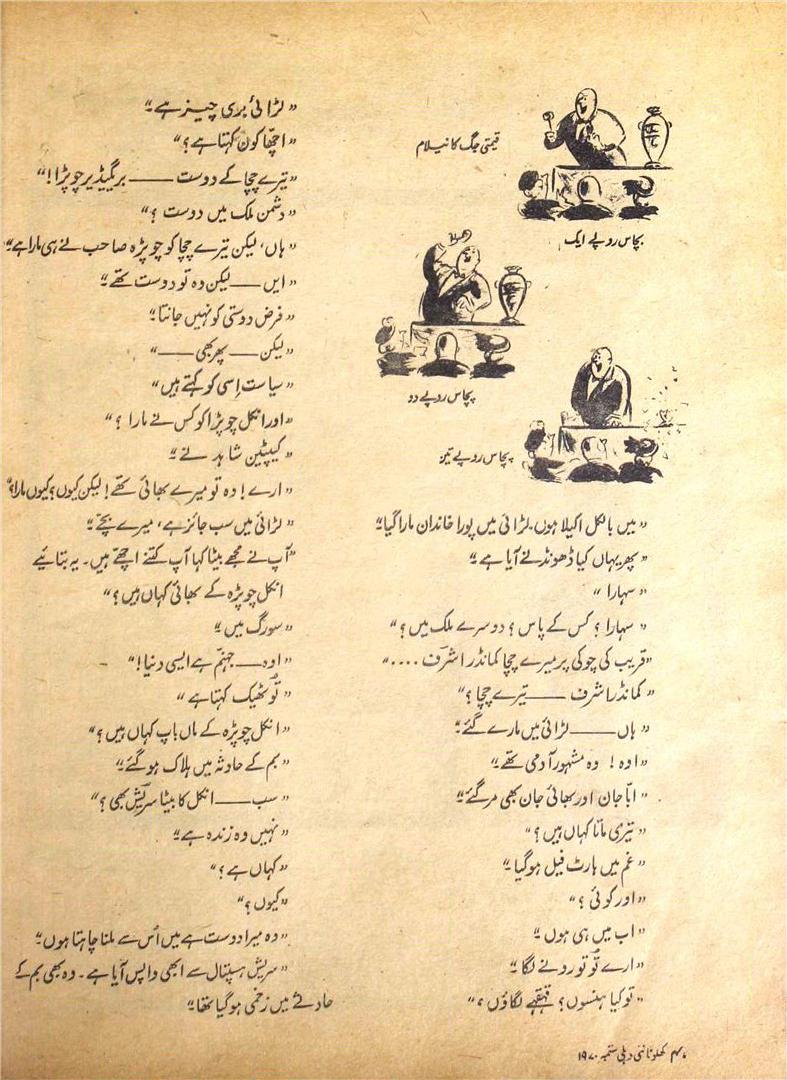 قیمتی جگ کا نیلام
پچاس روپے ایک
پچاس روپے دو
پچاس روپے تین
"میں بالکل اکیلا ہوں۔ لڑائی میں پورا خاندان مارا گیا"
"پھر یہاں کیا ڈھونڈنے آیا ہے۔"
"سہارا"
"سہارا؟ کس کے پاس؟ دوسرے ملک میں؟"
"قریب کی چوکی پر میرے چچا کمانڈر اشرف ...."
"کمانڈر اشرف —— تیرے چچا؟"
"ہاں —— لڑائی میں مارے گئے۔"
"اوہ! وہ مشہور آدمی تھے۔"
"ابّا جان اور بھائی جان بھی مر گئے۔"
"تیری ماتا کہاں ہیں؟"
"غم میں ہارٹ فیل ہو گیا۔"
"اور کوئی؟"
"اب میں ہی ہوں۔"
"ارے تُو تو رونے لگا۔"
"تو کیا ہنسوں؟ قہقہے لگاؤں؟"
"لڑائی بُری چیز ہے۔"
"اچھا کون کہتا ہے؟"
"تیرے چچا کے دوست —— بریگیڈیر چوپڑا!"
"دشمن ملک میں دوست؟"
"ہاں، لیکن تیرے چچا کو چوپڑہ صاحب نے ہی مارا ہے۔"
"ایں —— لیکن وہ تو دوست تھے۔"
"فرض دوستی کو نہیں جانتا۔"
"لیکن —— پھر بھی ——"
"سیاست اِسی کو کہتے ہیں"
"اور انکل چوپڑا کو کس نے مارا؟"
"کیپٹین شاہد نے۔"
"ارے! وہ تو میرے بھائی تھے! لیکن کیوں؟ کیوں مارا؟"
"لڑائی میں سب جائز ہے، میرے بچّے۔"
"آپ نے مجھے بیٹا کہا آپ کتنے اچھے ہیں۔ یہ بتائیے
انکل چوپڑہ کے بھائی کہاں ہیں؟"
"سورگ میں۔"
"اوہ —— جہنّم ہے ایسی دنیا!"
"تُو ٹھیک کہتا ہے"
"انکل چوپڑہ کے ماں باپ کہاں ہیں؟"
"بم کے حادثہ میں ہلاک ہو گئے۔"
"سب —— انکل کا بیٹا سریش بھی؟"
"نہیں وہ زندہ ہے۔"
"کہاں ہے؟"
"کیوں؟"
"وہ میرا دوست ہے میں اُس سے ملنا چاہتا ہوں۔"
"سریش ہسپتال سے ابھی واپس آیا ہے۔ وہ بھی بم کے
حادثے میں زخمی ہو گیا تھا۔"
کھلونا نئی دہلی ستمبر ۱۹۷۰